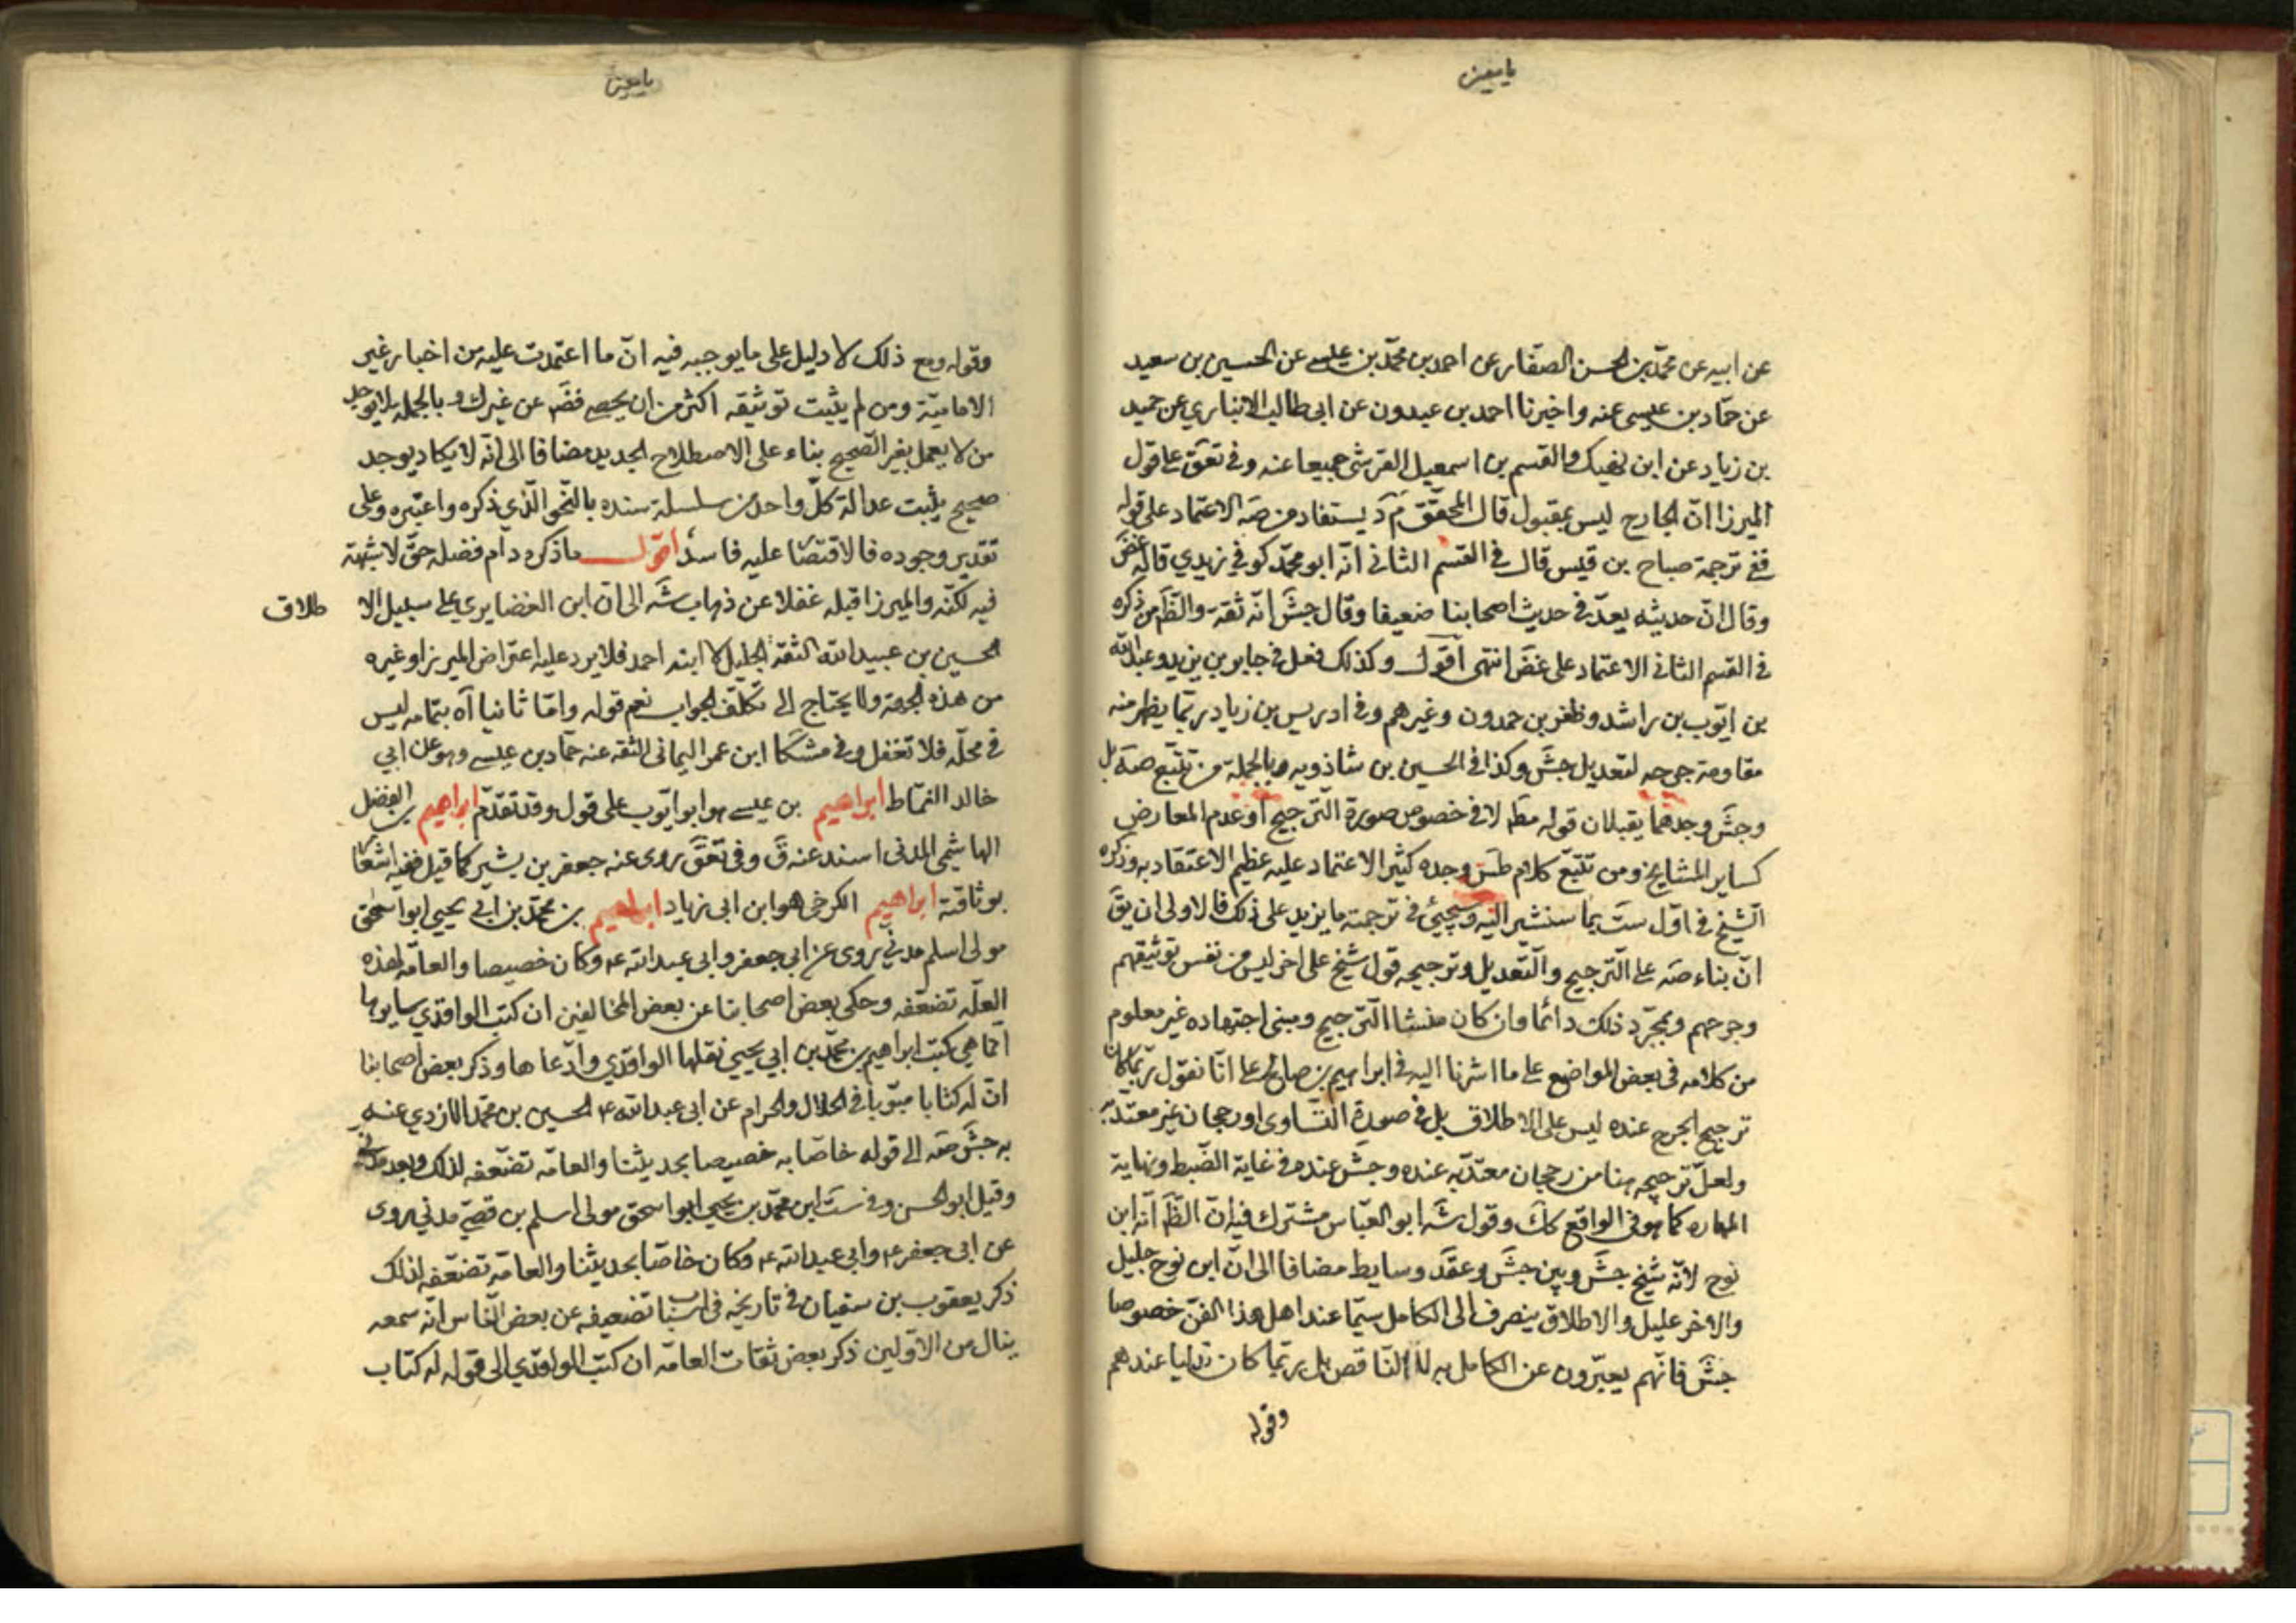 يا معين
عن ابيه عن محمّد بن الحسن الصفّار عن احمد بن محمّد بن عيسى عن الحسين بن سعيد
عن حمّاد بن عيسى عنه واخبرنا احمد بن عبدون عن ابى طالب الانباري عن حميد
بن زياد عن ابن نهيك والقسم بن اسمعيل القرشى جميعا عنه وفى تعق على قول
الميرزا انّ الجارح ليس بمقبول قال المحقّق يستفاد من صه الاعتماد على قوله
ففى ترجمة صباح بن قيس قال فى القسم الثانى انّه ابو محمّد كوفي زيدي قاله غض
وقال انّ حديثه يعدّ فى حديث اصحابنا ضعيفا وقال جش انّه ثقة والظ من ذكره
فى القسم الثانى الاعتماد على غض انتهى اقول وكذلك فعل فى جابر بن يزيد وعبد الله
بن ايّوب بن راشد وظفر بن حمدون وغيرهم وفى ادريس بن زياد ربّما يظهر منه
مقاومة جرحه لتعديل جش وكذا فى الحسين بن شاذويه وبالجملة من تتبّع صه بل
وجش وجدهما يقبلان قوله مط لا فى خصوص صورة الترجيح او عدم المعارض
كساير المشايخ ومن تتبّع كلام طس وجده كثير الاعتماد عليه عظيم الاعتقاد به وذكره
الشيخ فى اوّل ست بما سنشير اليه وسيجيئ فى ترجمته ما يزيد على ذلك فالاولى ان يق
انّ بناء صه على الترجيح والتّعديل وترجيحه قول شيخ على اخر ليس من نفس توثيقهم
وجرحهم وبمجرّد ذلك دائما وان كان منشا الترجيح ومبنى اجتهاده غير معلوم
من كلامه فى بعض المواضع على ما اشرنا اليه فى ابراهيم بن صالح على انّا نقول ربّما كان
ترجيح الجرح عنده ليس على الاطلاق بل فى صورة التساوى او رجحان غير معتدّ به
ولعلّ ترجيحه هنا من رجحان معتدّ به عنده وجش عنده فى غاية الضّبط ونهاية
المهاره كما هو فى الواقع كك وقول شه ابو العبّاس مشترك فيه انّ الظ انّه ابن
نوح لانّه شيخ جش وبين جش وعقد وسايط مضافا الى انّ ابن نوح جليل
والاخر عليل والاطلاق ينصرف الى الكامل سيّما عند اهل هذا الفنّ خصوصا
جش فانّهم يعبّرون عن الكامل به لا النّاقص بل ربّما كان تدليسا عندهم
وقوله
يا معين
وقوله ومع ذلك لا دليل على ما يوجبه فيه انّ ما اعتمدت عليه من اخبار غير
الاماميّة ومن لم يثبت توثيقه اكثر من ان يحصى فضَ عن غيرك وبالجمله لا يوجد
من لا يعمل بغير الصّحيح بناء على الاصطلاح الجديد مضافا الى انّه لا يكاد يوجد
صحيح يثبت عدالة كلّ واحد من سلسلة سنده بالنّحو الّذي ذكره واعتبره وعلى
تقدير وجوده فالاقتصا عليه فاسد اقول ما ذكره دام فضله حقّ لا شبهة
فيه لكنّه والميرزا قبله غفلا عن ذهاب شه الى ان ابن الغضايري على سبيل الا طلاق
الحسين بن عبيد الله الثقة الجليل لا ابنه احمد فلا يرد عليه اعتراض الميرزا وغيره
من هذه الجهة ولا يحتاج الى تكلّف الجواب نعم قوله وامّا ثانيا آه بتمامه ليس
فى محلّه فلا تغفل وفى مشكا ابن عمر اليمانى الثقه عنه حمّاد بن عيسى وهو عن ابي
خالد القمّاط ابراهيم بن عيسى هو ابو ايّوب على قول وقد تقدّم ابراهيم بن الفضل
الهاشمى المدنى اسند عنه ق وفى تعق روى عنه جعفر بن بشير كما قيل ففيه اشعا
بوثاقته ابراهيم الكرخى هو ابن ابى زياد ابراهيم بن محمّد بن ابى يحيى ابو اسحق
مولى اسلم مدنى روى عن ابى جعفر وابى عبد الله ع وكان خصيصا والعامّه لهذه
العلّه تضعّفه وحكى بعض اصحابنا عن بعض المخالفين ان كتب الواقدي سايرها
انّما هى كتب ابراهيم بن محمّد بن ابي يحيى نقلها الواقدي وادّعاها وذكر بعض اصحابنا
انّ له كتابا مبوّبا فى الحلال والحرام عن ابى عبد الله ع الحسين بن محمّد الازدي عنه
به جش صه الى قوله خاصّا به خصيصا بحديثنا والعامّه تضعّفه لذلك وبعد مدنى
وقيل ابو الحسن وفى ست ابن محمّد بن يحيى ابو اسحق مولى اسلم بن قصى مدنى روى
عن ابى جعفر ع وابى عبد الله ع وكان خاصّا بحديثنا والعامّة تضعّفه لذلك
ذكر يعقوب بن سفيان فى تاريخه فى اسباب تضعيفه عن بعض النّاس انّه سمعه
ينال من الاوّلين ذكر بعض ثقات العامّه ان كتب الواقدي الى قوله له كتاب